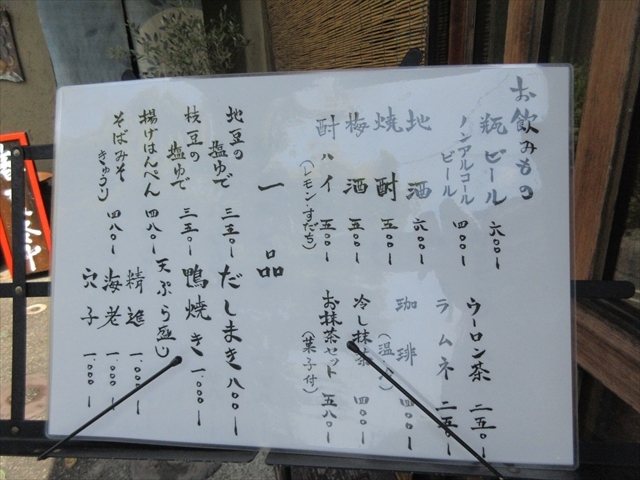 お飲みもの
瓶ビール 六〇〇ー
ノンアルコールビール 四〇〇ー
地酒 六〇〇ー
焼酎 五〇〇ー
梅酒 五〇〇ー
酎ハイ 五〇〇ー
(レモン すだち)
ウーロン茶 二五〇ー
ラムネ 二五〇ー
珈琲 四〇〇ー
冷し抹茶 四〇〇ー
お抹茶セット 五八〇ー
(菓子付)
一品
地豆の塩ゆで 三五〇ー
枝豆の塩ゆで 三五〇ー
揚げはんぺん 四八〇ー
そばみそきゅうり 四八〇ー
だしまき 八〇〇ー
鴨焼き 一、〇〇〇ー
天ぷら盛り
精進 一、〇〇〇ー
海老 一、〇〇〇ー
穴子 一、〇〇〇ー